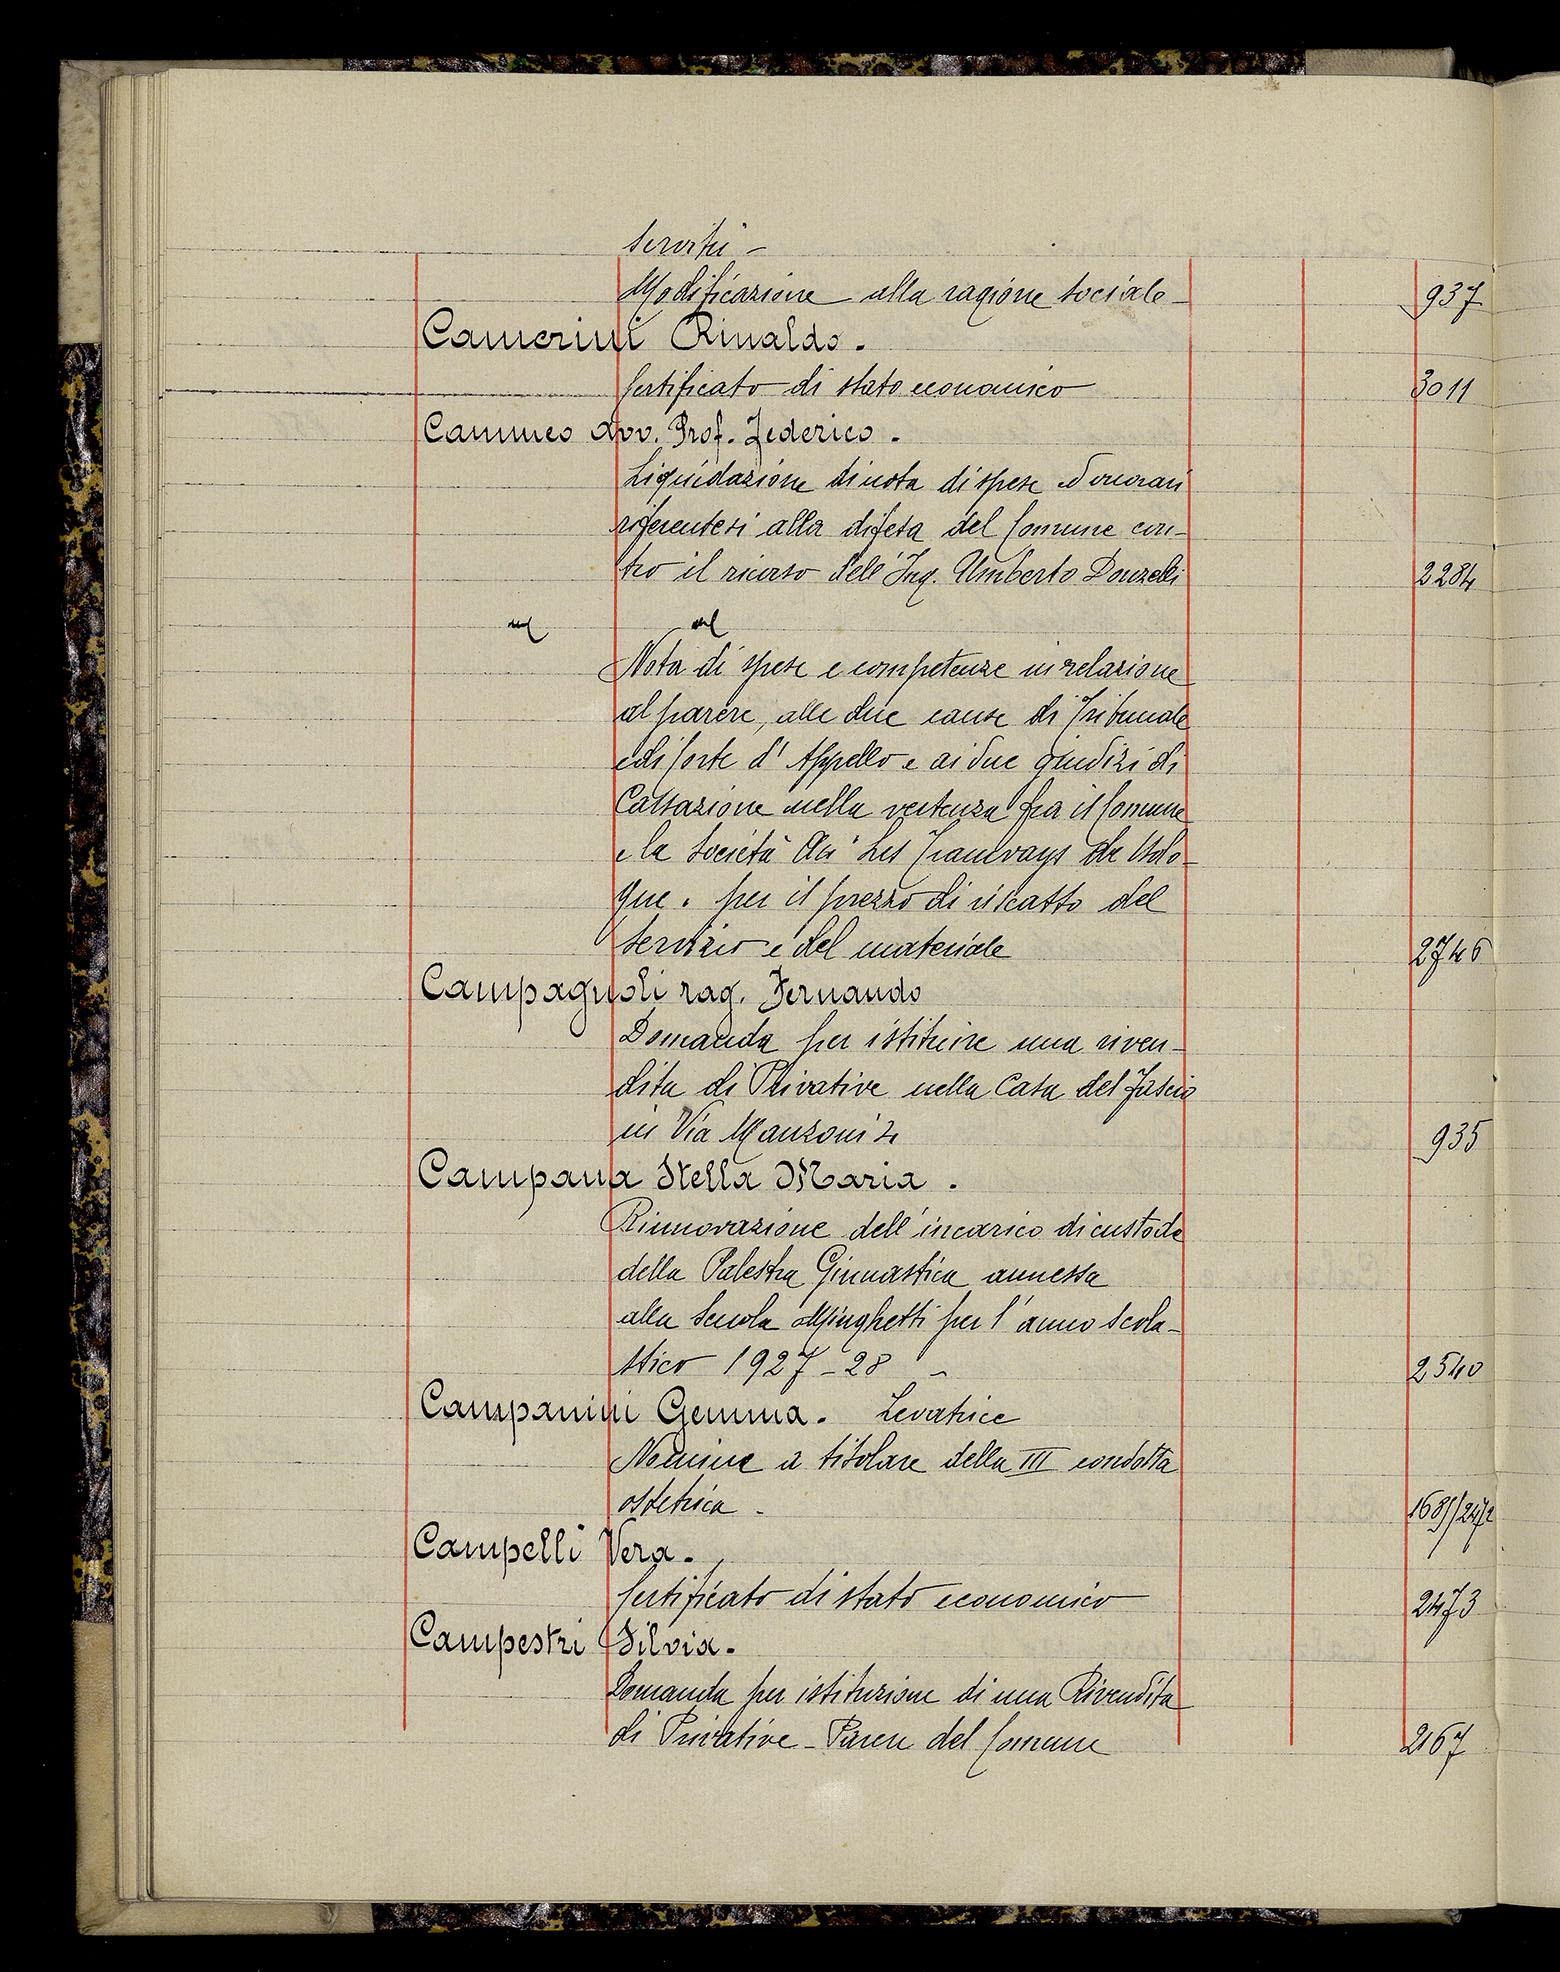 servitù -
Modificazione alla ragione sociale - 937
Camerini Rinaldo.
Certificato di stato economico 3011
Cammeo Avv. Prof. Federico.
Liquidazione di nota di spese ed onorari
riferentesi alla difesa del Comune con-
tro il ricorso dell'Ing. Umberto Donzelli 2284
Nota di spese e competenze in relazione
al parere, alle due cause di Tribunale
e di Corte d'Appello e ai due giudizi di
Cassazione nella vertenza fra il Comune
e la Società An "Les Tramvays de Bolo-
gne" per il prezzo di riscatto del
servizio e del materiale 2746
Campagnoli rag. Fernando
Domanda per istituire una riven-
dita di Privative nella Casa del Fascio
in Via Manzoni 4 935
Campana Stella Maria.
Rinnovazione dell'incarico di custode
della Palestra Ginnastica annessa
alla Scuola Minghetti per l'anno scola-
stico 1927-28 - 2540
Campanini Gemma. Levatrice
Nomine a titolare della III condotta
ostetrica - 1689/2472
Campelli Vera.
Certificato di stato economico 2473
Campestri Silvia.
Domanda per istituzione di una Rivendita
di Privative - Parere del Comune 2167